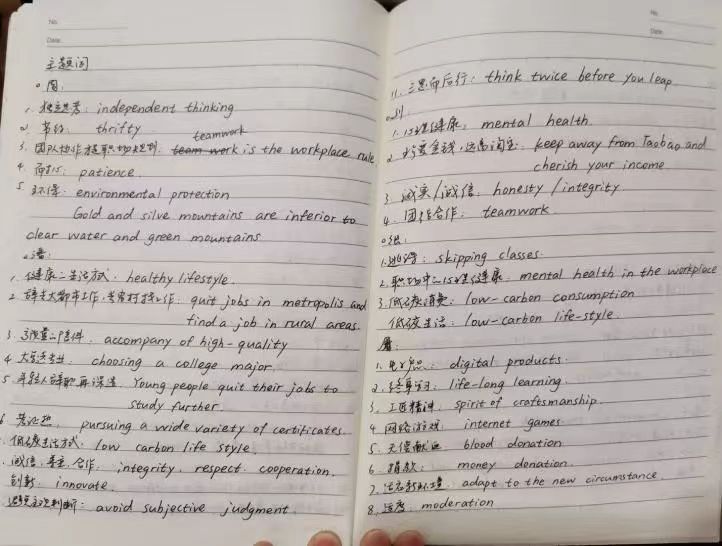 No.
Date.
主题词
。周:
1. 独立思考: independent thinking
2. 节约: thrifty
teamwork
3. 团队协作是职场规则: team work is the workplace rule
4. 耐心: patience.
5 环保: environmental protection
Gold and silve mountains are inferor to
clear water and green mountains
1. 健康生活方式: healthy lifestyle.
2. 辞去大都市工作, quit jobs in metropolis and
find a job in rural areas.
3 高质量陪伴: accompany of high-quality
4 大学选专业: choosing a college major.
5 年轻人辞职再深造 Young people quit their jobs to
study further.
6 考证热, pursuing a wide variety of certificates.
低碳生活方式: low carbon life style.
诚信, 尊重, 合作: integrity, respect, cooperation.
创新: innovate.
避免主观判断: avoid subjective judgment.
No.
Date.
11. 三思而后行: think twice before you leap
1. 心理健康: mental health.
2 珍爱金钱, 远离淘宝: keep away from Taobao and
cherish your income
3 诚实/诚信: honesty / integrity
4. 团作合作: teamwork.
1. 逃课: skipping classes.
2. 职场中心理健康: mental health in the workplace
3. 低碳消费: low-carbon consumption
低碳生活: low-carbon life-style.
1. 电子产品: digital products.
2. 终身学习: life-long learning.
3. 工匠精神: spirit of craftsmanship.
4. 网络游戏: internet games.
5. 无偿献血 blood donation.
6. 捐款: money donation.
7. 适应新环境: adapt to the new circumstance.
8. 适度: moderation